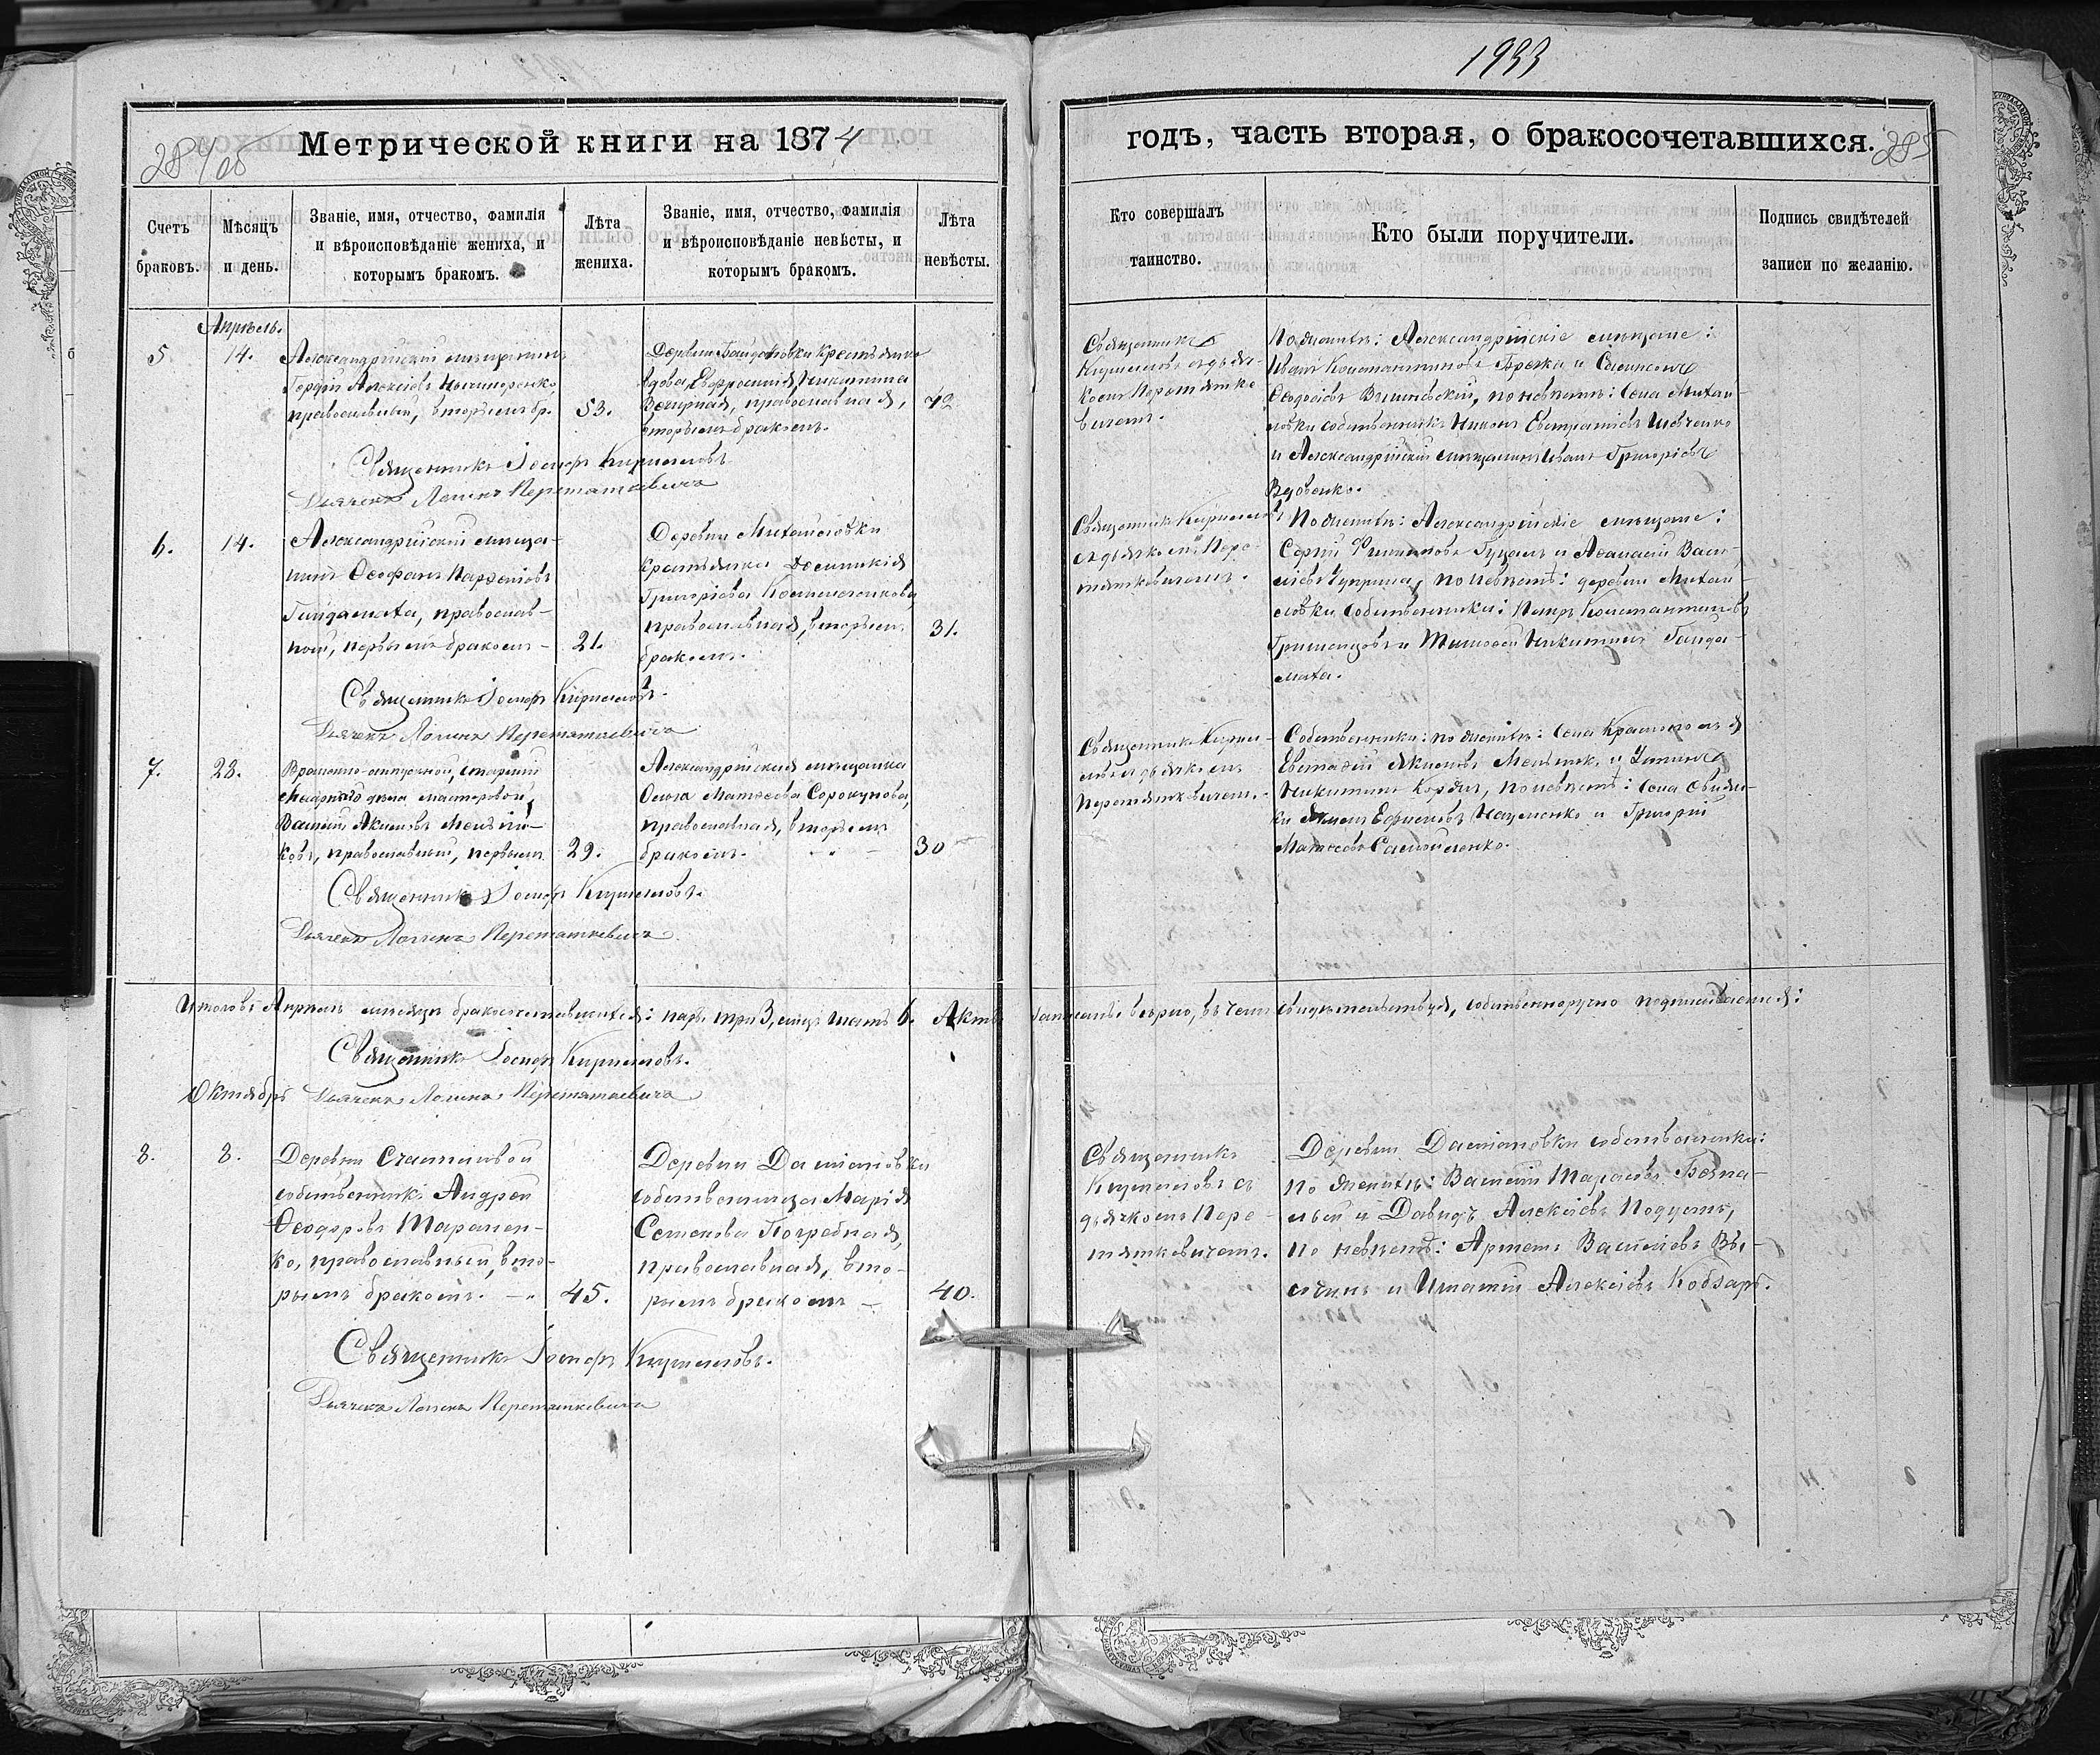 1933
Метрической книги на 1874
годъ, часть вторая, о бракосочетавшихся.
285
Счетъ браковъ.
Мѣсяцъ и день.
Званіе, имя, отчество, фамилія и вѣроисповѣданіе жениха, и которымъ бракомъ.
Лѣта жениха.
Званіе, имя, отчество, фамилія и вѣроисповѣданіе невѣсты, и которымъ бракомъ.
Лѣта невѣсты.
Кто совершалъ таинство.
Кто были поручители.
Подпись свидѣтелей записи по желанію.
Апрѣль.
5
14.
Александрійскій мѣщанинъ
Гордій Алексіевъ
православный, вторымъ бр.
53.
крестьянка
вдова, Евфросинія Никитина
православная,
вторымъ бракомъ.
42
Священникъ
Кирилловъ съ дья-
комъ Перетятке-
вичемъ.
По женихѣ: Александрійскіе мѣщане:
Иванъ Константиновъ и
Ѳеодосіевъ Вишневскій, по невѣстѣ: Села Михай-
ловки собственникъ Никонъ Евстратіевъ Шевченко
и Александрійскій мѣщанинъ Иванъ Григоріевъ
Вдовенко.
Священникъ Іосифъ Кирилловъ
Дьячекъ Логинъ Перетяткевичъ
6.
14.
Александрійскій мѣща-
нинъ Ѳеофанъ Парѳеніевъ
Гайдамака, православ-
ный, первымъ бракомъ -
21.
Деревни Михайловки
крестьянка Домникія
Григоріева
православная, вторымъ
бракомъ.
31.
Священникъ Кирилловъ
съ дьякомъ Пере-
тяткевичемъ.
По женихѣ: Александрійскіе мѣщане:
Сергій Филиповъ Гуцалъ и Аѳанасій Васи-
ліевъ Чуприна, по невѣстѣ: деревни Михай-
ловки собственники: Петръ Константиновъ
и Тимоѳей Никитинъ Гайда-
мака.
Священникъ Іосифъ Кирилловъ.
Дьячекъ Логинъ Перетяткевичъ
7.
28.
Временно-отпускной, старшій
мастеровой,
Василій Акимовъ Мельни-
ковъ, православный, первымъ
29.
Александрійская мѣщанка
Ольга Матѳеева Сорокунова,
православная, вторымъ
бракомъ.
30
Священникъ Кирил-
ловъ съ дьякомъ
Перетяткевичемъ.
Собственники: по женихѣ: Села Красноколья
Евстафій Акимовъ Мельникъ и
Никитинъ по невѣстѣ: Села
Акимъ Ефимовъ Науменко и Григорій
Матѳеевъ Самойленко.
Священникъ Іосифъ Кирилловъ.
Дьячекъ Логинъ Перетяткевичъ
Итого въ Апрѣлѣ мѣсяцѣ бракосочетавшихся: паръ три 3, лицъ шесть 6. Актъ записанъ вѣрно, въ чемъ свидѣтельствуя, собственноручно подписываемся:
Священникъ Іосифъ Кирилловъ.
Октябрь
Дьячекъ Логинъ Перетяткевичъ
8.
8.
Деревни Счастливой
собственникъ Андрей
Ѳеодоровъ Таранен-
ко, православный, вто-
рымъ бракомъ.
45.
Деревни Даміановки
собственница Марія
Семенова Погребная,
православная, вто-
рымъ бракомъ
40.
Священникъ
Кирилловъ съ
дьякомъ Пере-
тяткевичемъ.
Деревни Даміановки собственники:
по женихѣ: Василій Тарасовъ
и Давидъ Алексіевъ
по невѣстѣ: Артемъ Василіевъ Вы-
и Игнатій Алексіевъ Кобзарь.
Священникъ Іосифъ Кирилловъ.
Дьячекъ Логинъ Перетяткевичъ